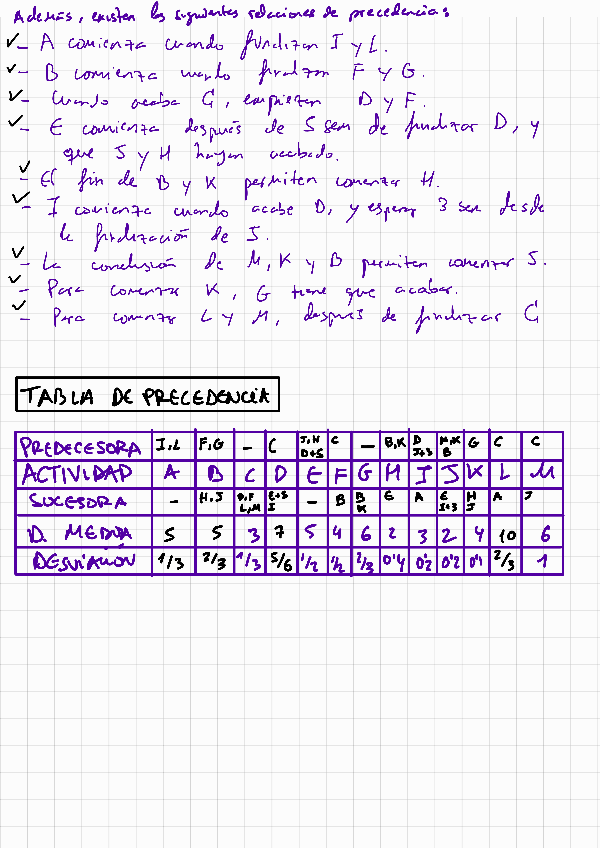 Además, existen las siguientes relaciones de precedencias
✓- A comienza cuando finalizan I y L.
✓- B comienza cuando finalizan F y G.
✓- Cuando acaba C, empiezan D y F.
✓- E comienza después de 5 sem de finalizar D, y
que J y H hayan acabado.
✓- El fin de B y K permiten comenzar H.
✓- I comienza cuando acabe D, y esperar 3 sem desde
la finalización de J.
✓- La conclusión de M, K y B permiten comenzar J.
✓- Para comenzar K, G tiene que acabar.
✓- Para comenzar L y M, después de finalizar C
TABLA DE PRECEDENCIA
PREDECESORA I,L F,G - C J,H D+5 C - B,K D J+3 M,K B G C C
ACTIVIDAD A B C D E F G H I J K L M
SUCESORA - H,J D,F L,M E+5 I - B B K E A E I+3 H J A J
D. MEDIA 5 5 3 7 5 4 6 2 3 2 4 10 6
DESVIACIÓN 1/3 2/3 1/3 5/6 1/2 1/2 2/3 0'4 0'2 0'2 0'1 2/3 1